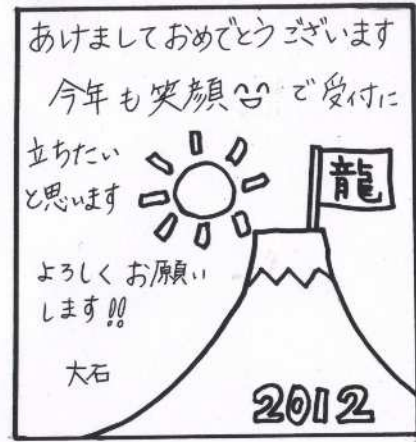 あけましておめでとうございます
今年も笑顔で受付に
立ちたい
と思います
よろしくお願い
します!!
大石
龍
2012